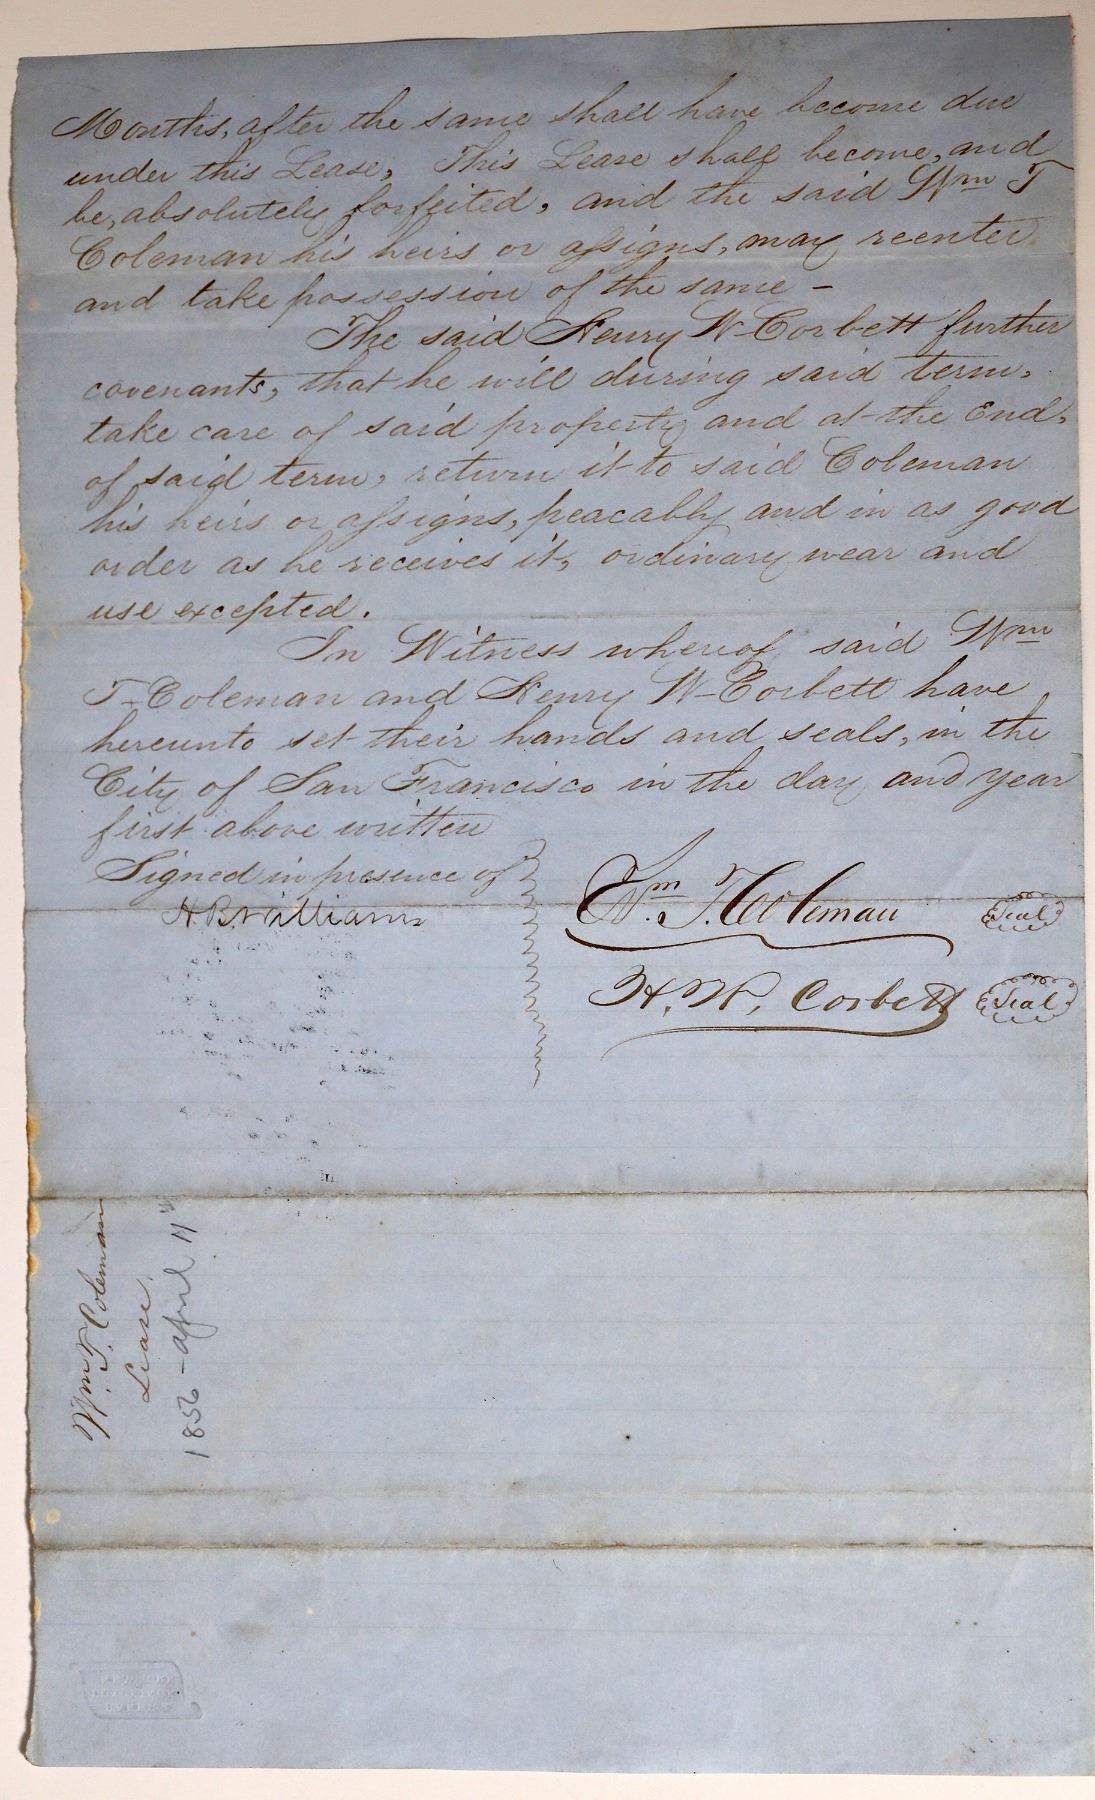 Months, after the same shall have become due
under this Lease, This Lease shall become, and
be, absolutely forfeited, and the said Wm T
Coleman his heirs or assigns, may reenter
and take possession of the same -
The said Henry W Corbett further
covenants, that he will during said term,
take care of said property and at the End,
of said term, return it to said Coleman
his heirs or assigns, peacably and in as good
order as he receives it, ordinary wear and
use excepted.
In Witness whereof said Wm
T. Coleman and Henry W Corbett have
hereunto set their hands and seals, in the
City of San Francisco in the day and year
first above written
Signed in presence of
H. B. Williams
Wm. T. Coleman Seal
H. W. Corbett Seal
Wm. T. Coleman
Lease.
1856 - April 11th